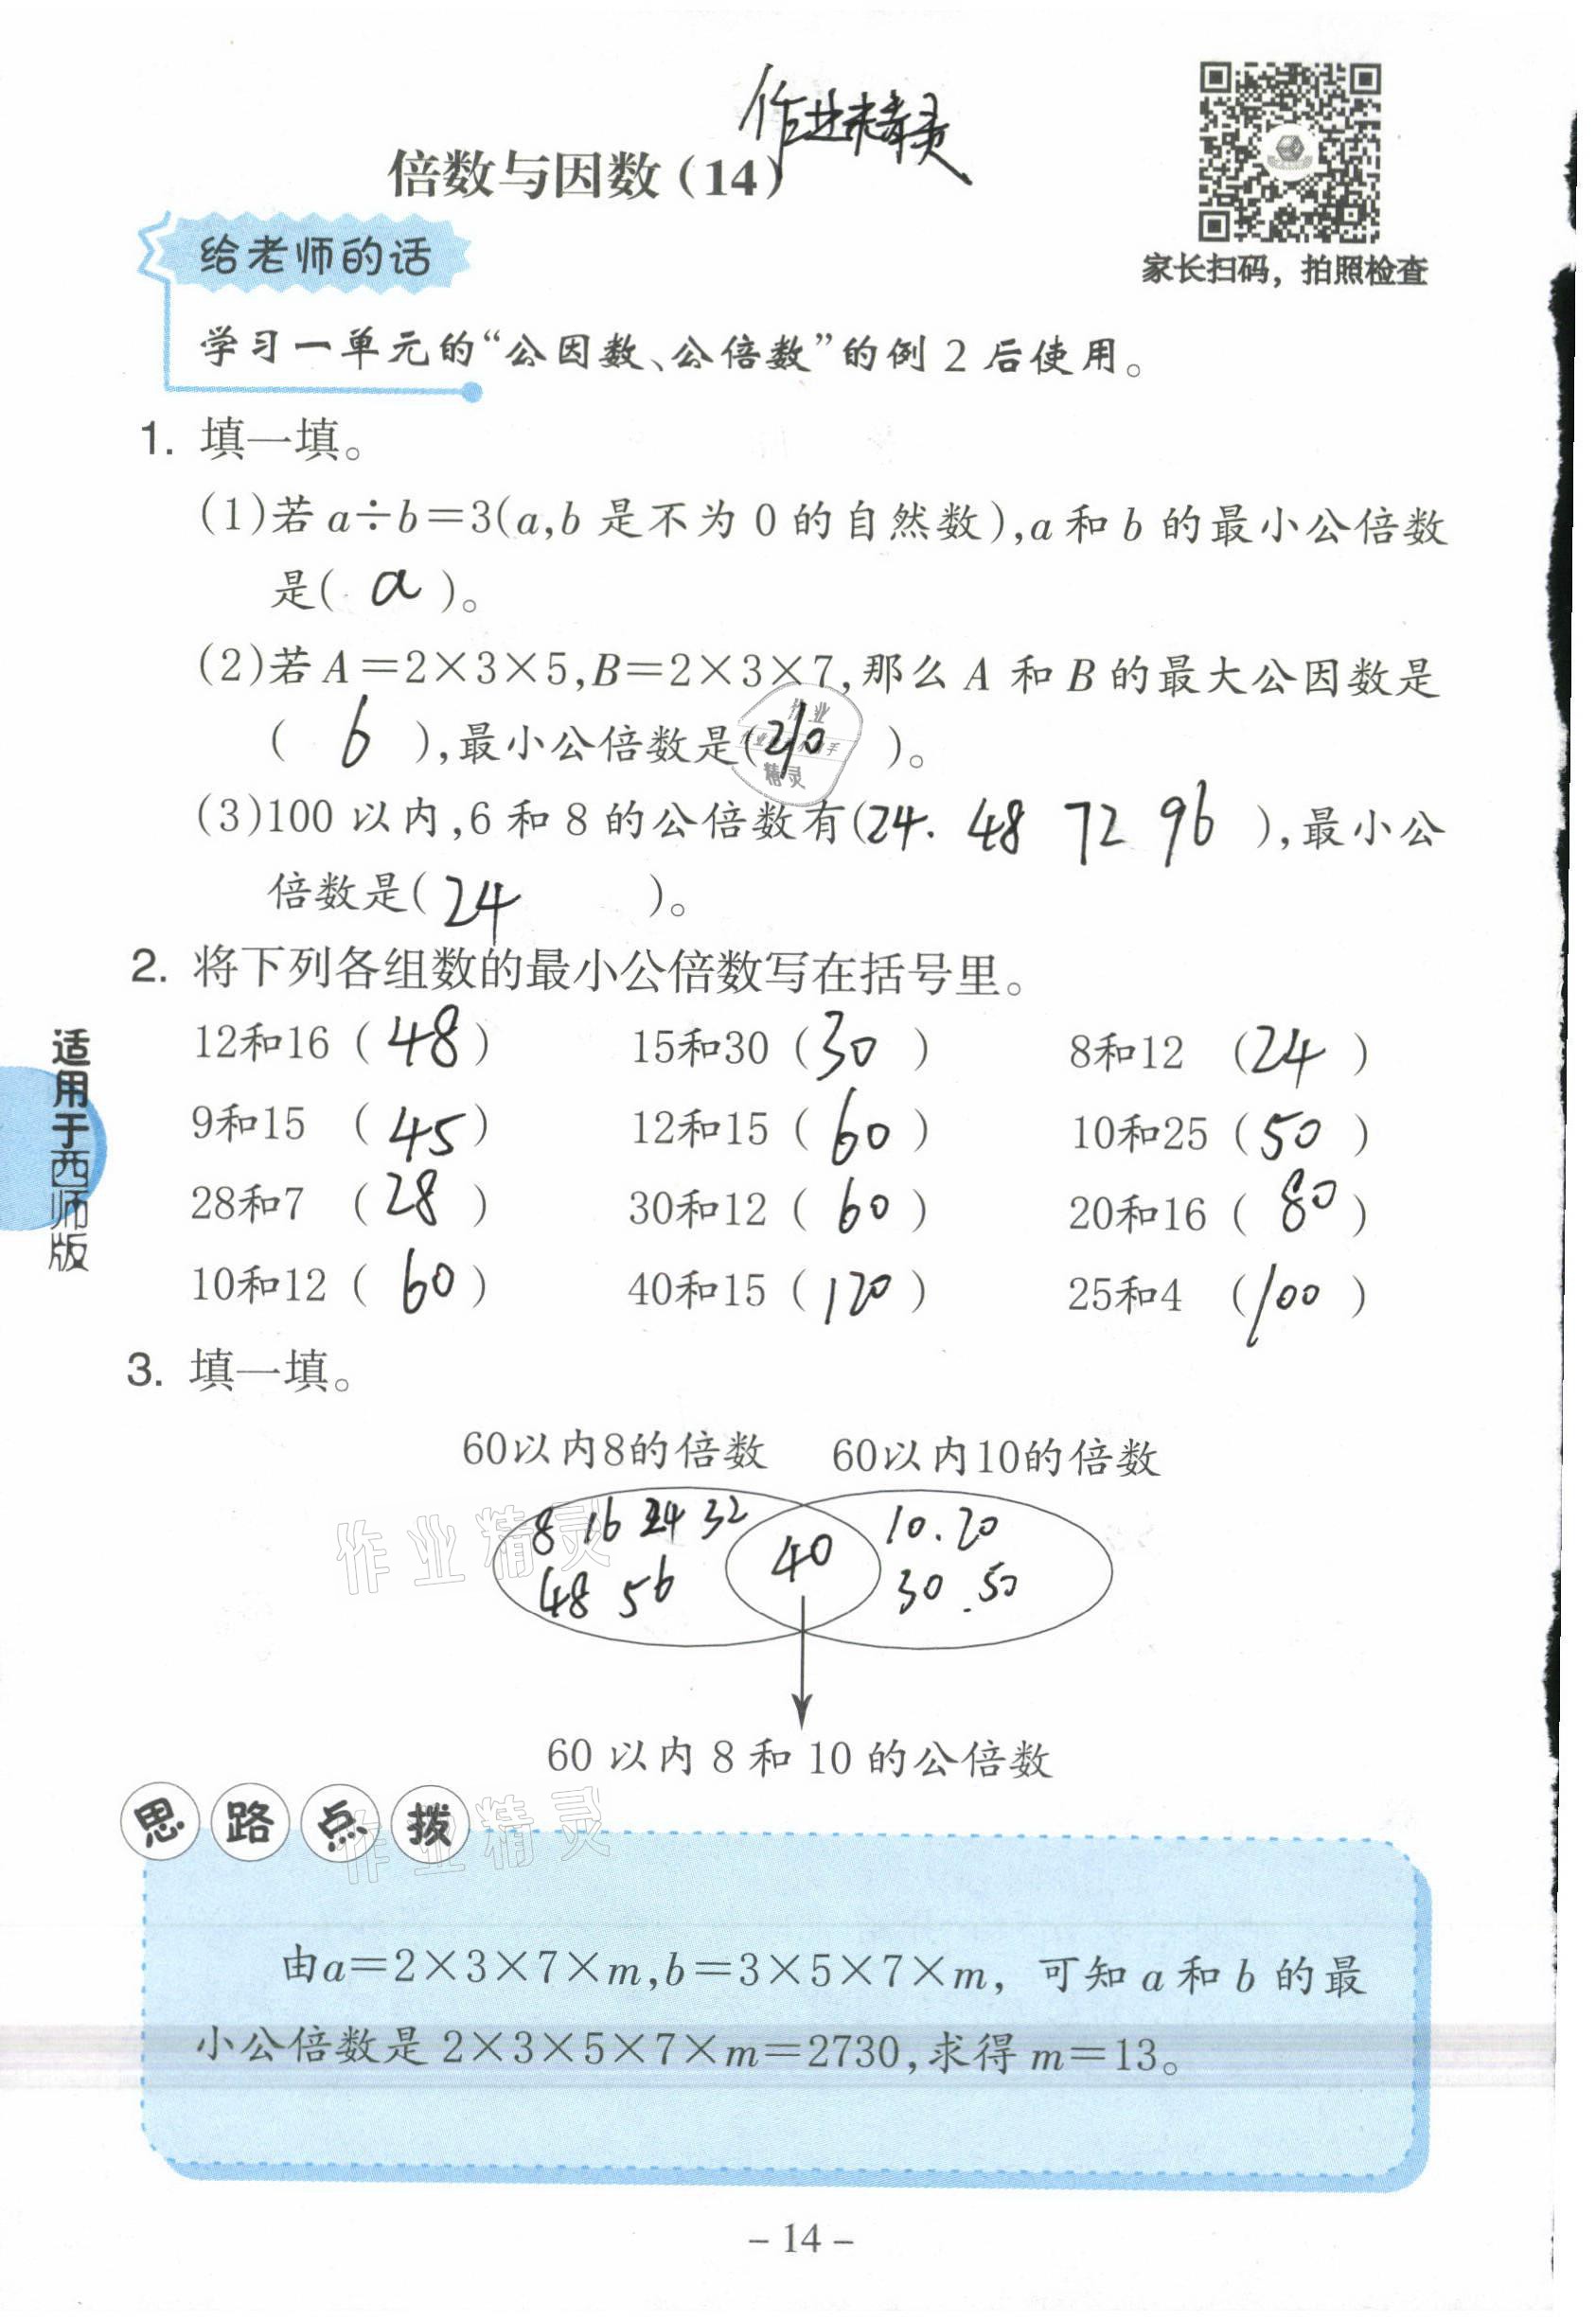 作业精灵
倍数与因数(14)
家长扫码，拍照检查
给老师的话
学习一单元的“公因数、公倍数”的例2后使用。
1. 填一填。
(1)若a÷b=3(a,b是不为0的自然数),a和b的最小公倍数
是( a )。
(2)若A=2×3×5,B=2×3×7,那么A和B的最大公因数是
( 6 ),最小公倍数是(210 )。
(3)100以内,6和8的公倍数有(24. 48 72 96 ),最小公
倍数是(24 )。
2. 将下列各组数的最小公倍数写在括号里。
12和16 (48) 15和30 (30) 8和12 (24)
9和15 (45) 12和15 (60) 10和25 (50)
28和7 (28) 30和12 (60) 20和16 (80)
10和12 (60) 40和15 (120) 25和4 (100)
适用于西师版
3. 填一填。
60以内8的倍数 60以内10的倍数
8 16 24 32 40 10.20
48 56 30.50
60以内8和10的公倍数
作业精灵
思路点拨
作业精灵
由a=2×3×7×m,b=3×5×7×m, 可知a和b的最
小公倍数是2×3×5×7×m=2730,求得m=13。
-14-